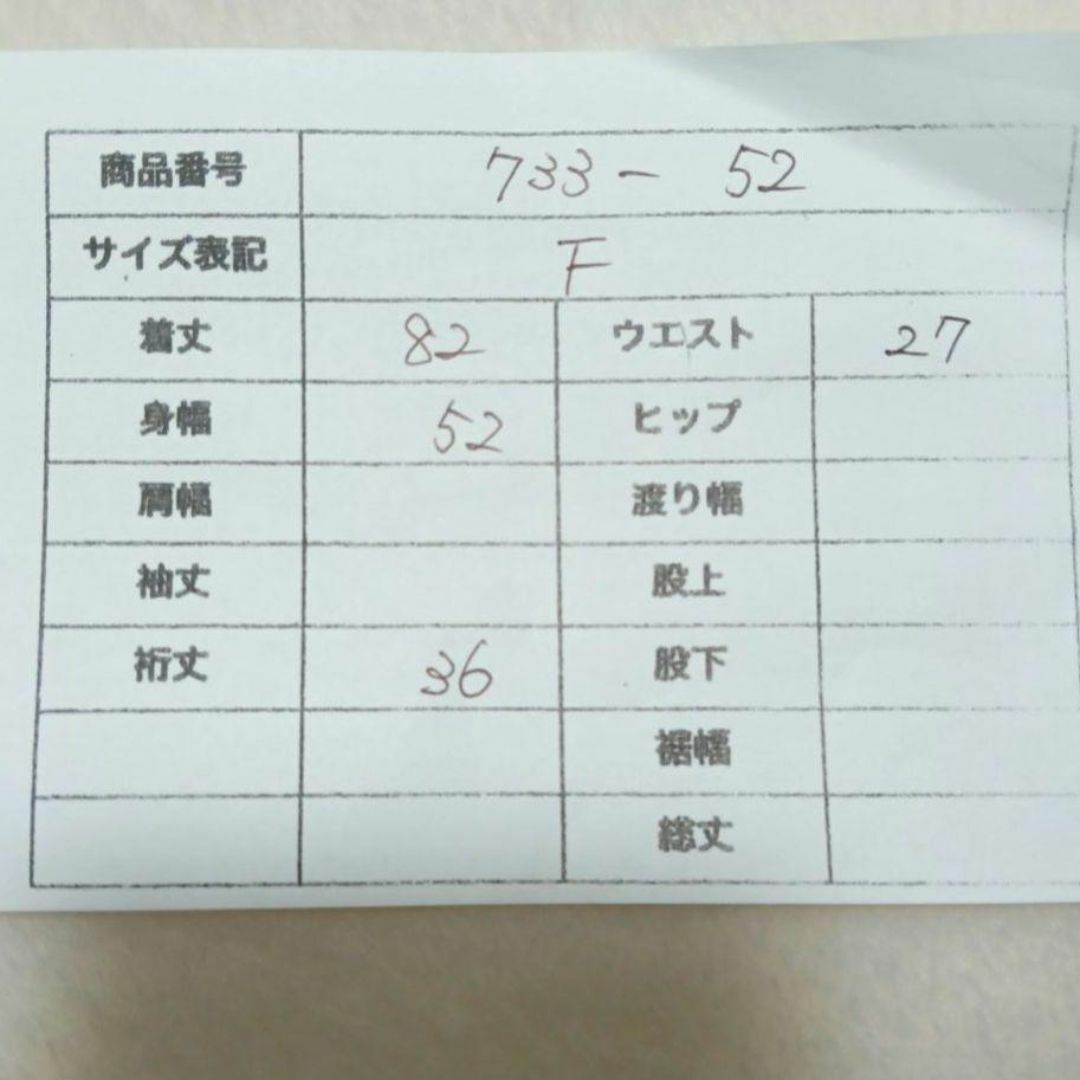 商品番号 733- 52
サイズ表記 F
着丈 82 ウエスト 27
身幅 52 ヒップ
肩幅 渡り幅
袖丈 股上
裄丈 36 股下
裾幅
総丈